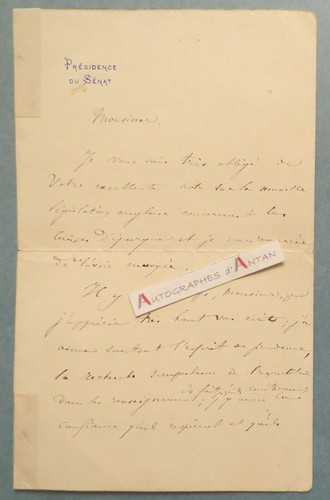 PRÉSIDENCE
DU SÉNAT
Monsieur,
Je vous suis très obligé de
votre excellente note sur la nouvelle
législation anglaise concernant les
caisses d'épargne et je vous remercie
de l'avoir envoyée.
AUTOGRAPHES d'ANTAN
Il y a Monsieur, que
j'apprécie très haut vos écrits, j'y
surtout l'esprit de prudence,
la recherche scrupuleuse de l'exactitude
dans les renseignements, j'y
confiance qu'ils inspirent et qu'ils